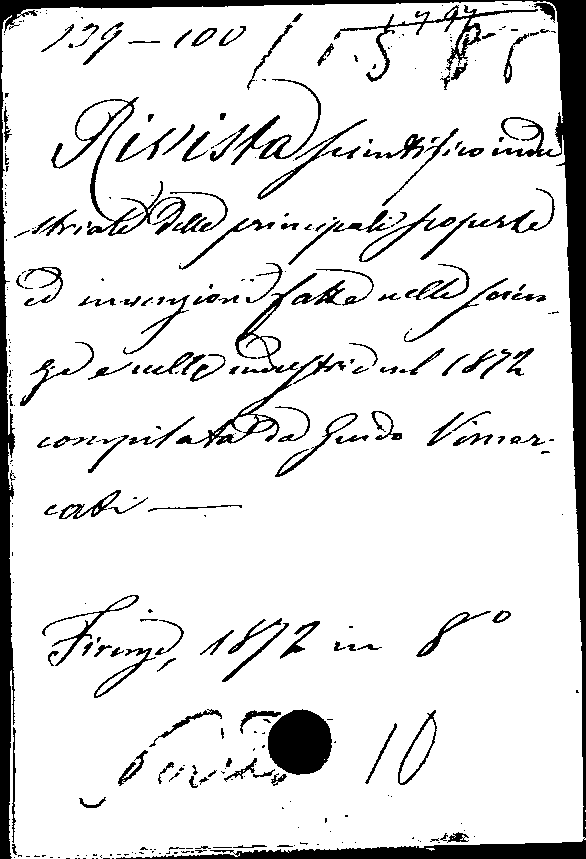 139-100
Rivista scientifico indu
striale delle principali scoperte
ed invenzioni fatte nelle scien-
ze e nelle industrie nel 1872
compilata da Guido Vimer-
cati —
Firenze, 1872 in 8º
10